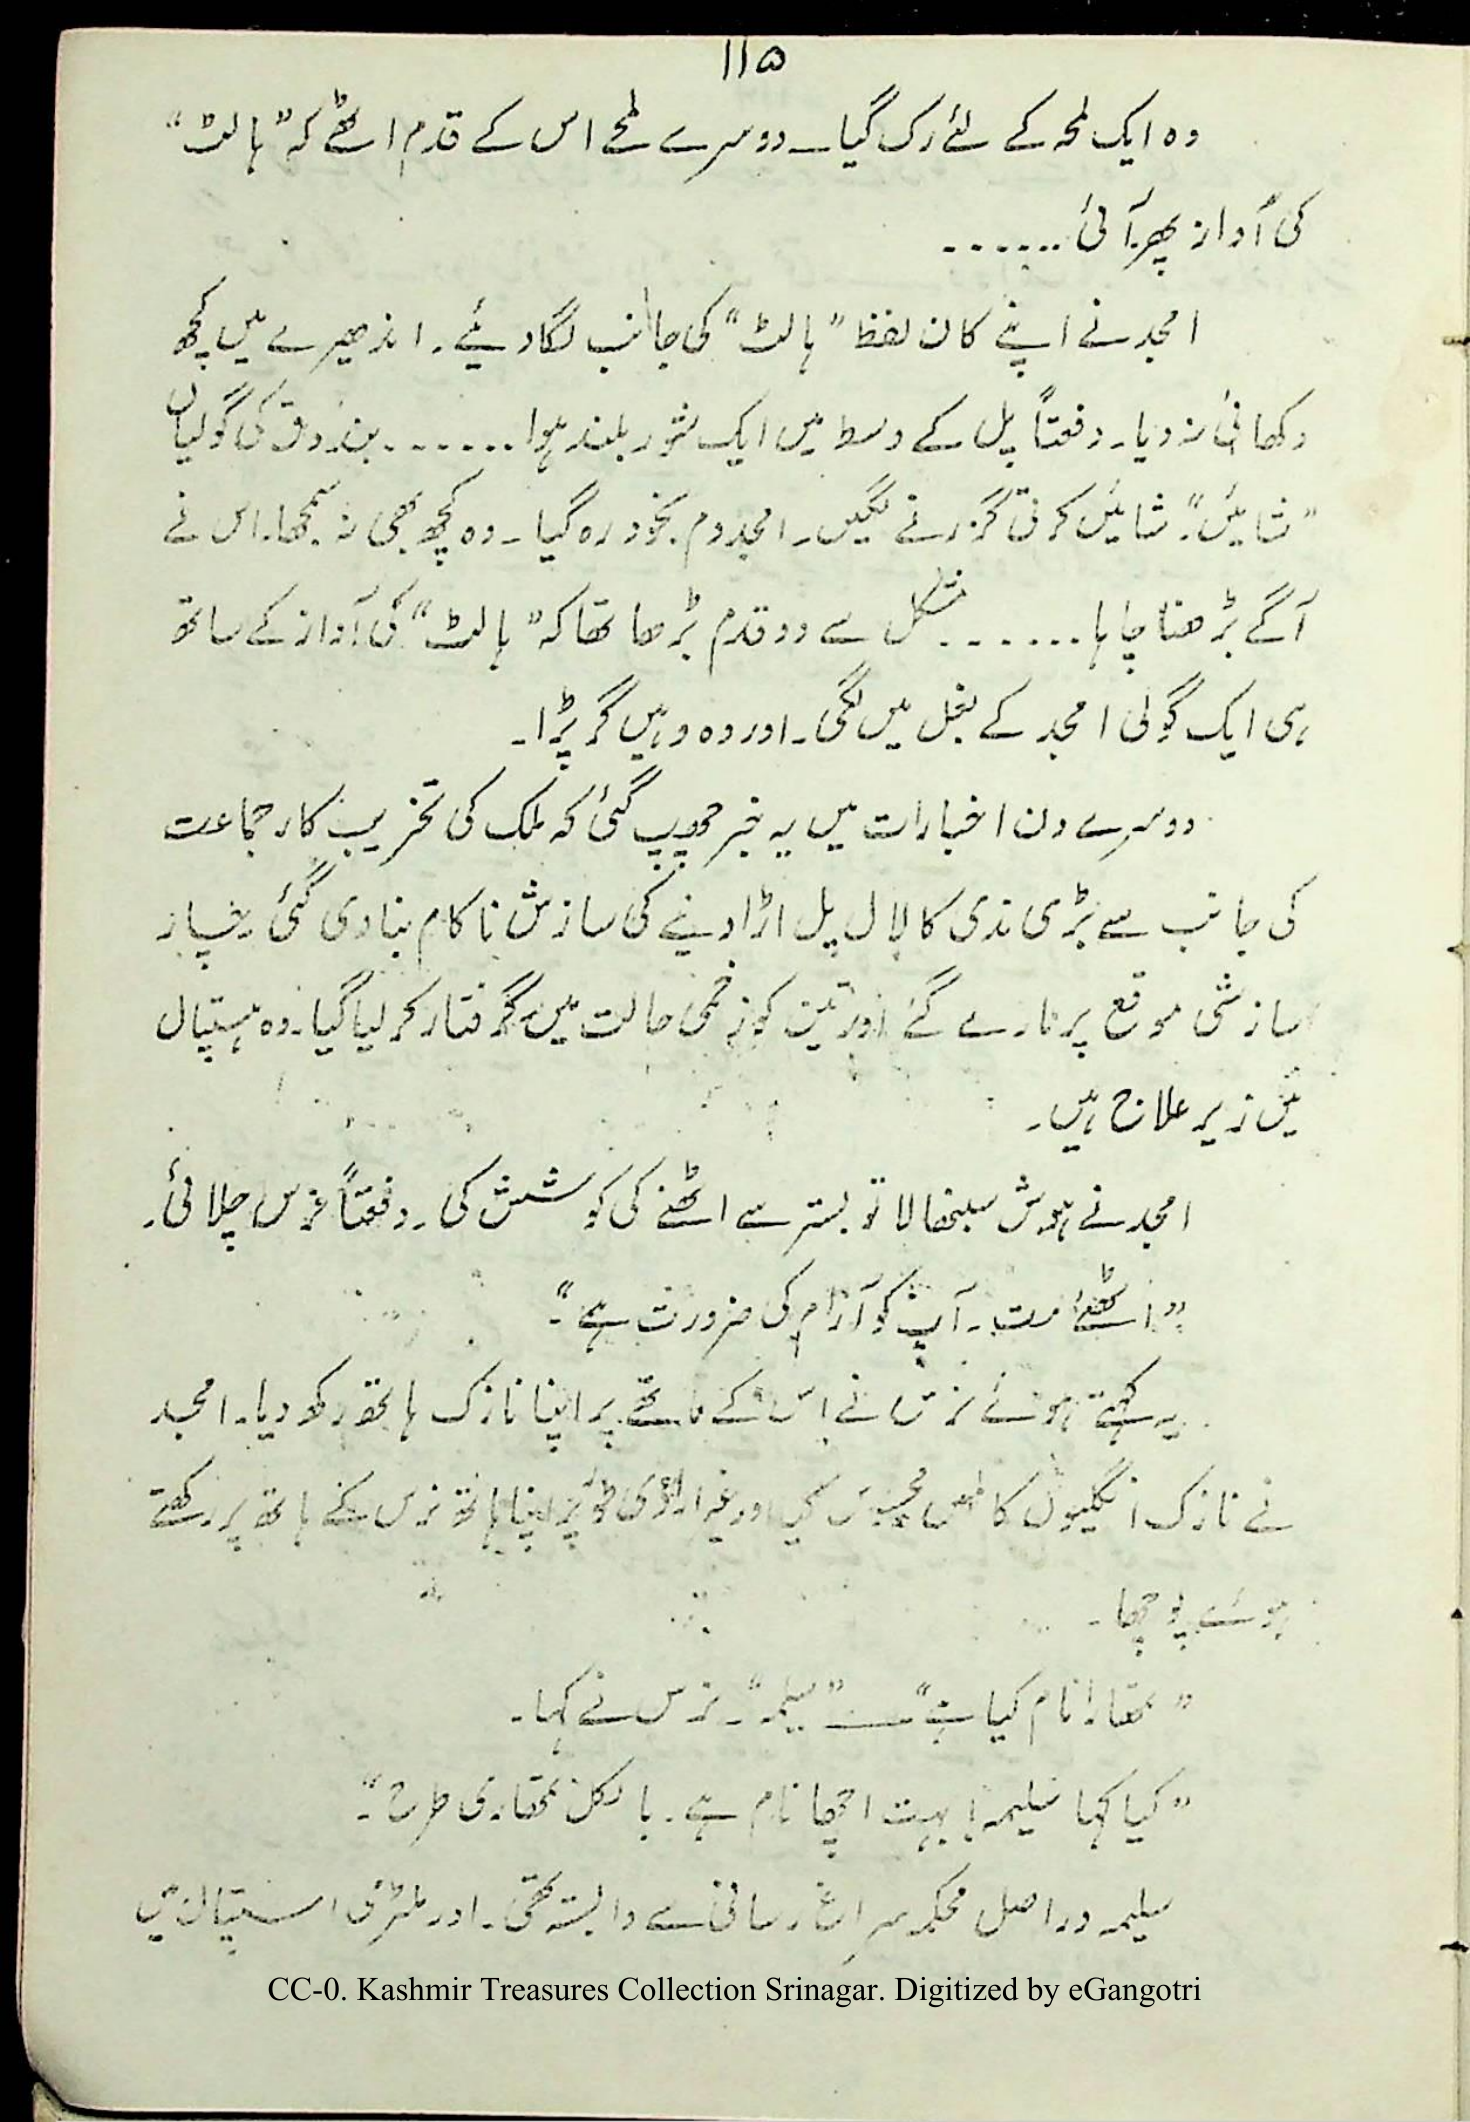 ۱۱۵
وہ ایک لمحہ کے لئے رک گیا۔ دوسرے لمحے اس کے قدم اٹھے کہ "ہالٹ"
کی آواز پھر آئی ......
امجد نے اپنے کان لفظ "ہالٹ" کی جانب لگا دیئے۔ اندھیرے میں کچھ
دکھائی نہ دیا۔ دفعتاً پل کے وسط میں ایک شور بلند ہوا ...... بندوق کی گولیاں
"شائیں"۔ شائیں کرتی گزرنے لگیں۔ امجد دم بخود رہ گیا۔ وہ کچھ بھی نہ سمجھا۔ اس نے
آگے بڑھنا چاہا ...... مشکل سے دو قدم بڑھا تھا کہ "ہالٹ" کی آواز کے ساتھ
ہی ایک گولی امجد کے بغل میں لگی۔ اور وہ وہیں گر پڑا۔
دوسرے دن اخبارات میں یہ خبر چھپ گئی کہ ملک کی تخریب کار جماعت
کی جانب سے بڑی ندی کا لال پل اڑا دینے کی سازش ناکام بنا دی گئی۔ چار
سازشی موقع پر مارے گئے اور تین کو زخمی حالت میں گرفتار کر لیا گیا۔ وہ ہسپتال
میں زیر علاج ہیں۔
امجد نے ہوش سنبھالا تو بستر سے اٹھنے کی کوشش کی۔ دفعتاً نرس چلائی۔
"اٹھئے مت۔ آپ کو آرام کی ضرورت ہے"۔
یہ کہتے ہوئے نرس نے اس کے ماتھے پر اپنا نازک ہاتھ رکھ دیا۔ امجد
نے نازک انگلیوں کا لمس محسوس کیا اور غیر ارادی طور پر اپنا ہاتھ نرس کے ہاتھ پر رکھتے
ہوئے پوچھا۔
"تمھارا نام کیا ہے" — "سلیمہ"۔ نرس نے کہا۔
"کیا کہا سلیمہ! بہت اچھا نام ہے۔ بالکل تمھاری طرح"۔
سلیمہ دراصل محکمہ سراغ رسانی سے وابستہ تھی۔ اور ملٹری اسپتال میں
CC-0. Kashmir Treasures Collection Srinagar. Digitized by eGangotri